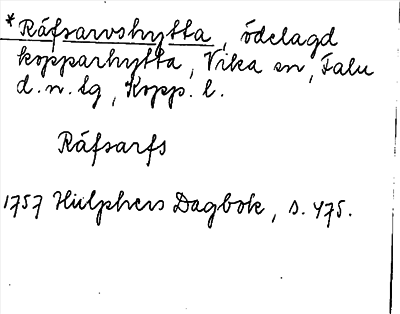 *Räfsarvshytta, ödelagd
kopparhytta, Vika sn, Falu
d.n. tg, Kopp. l.
Räfsarfs
1757 Hülphers Dagbok, s. 475.